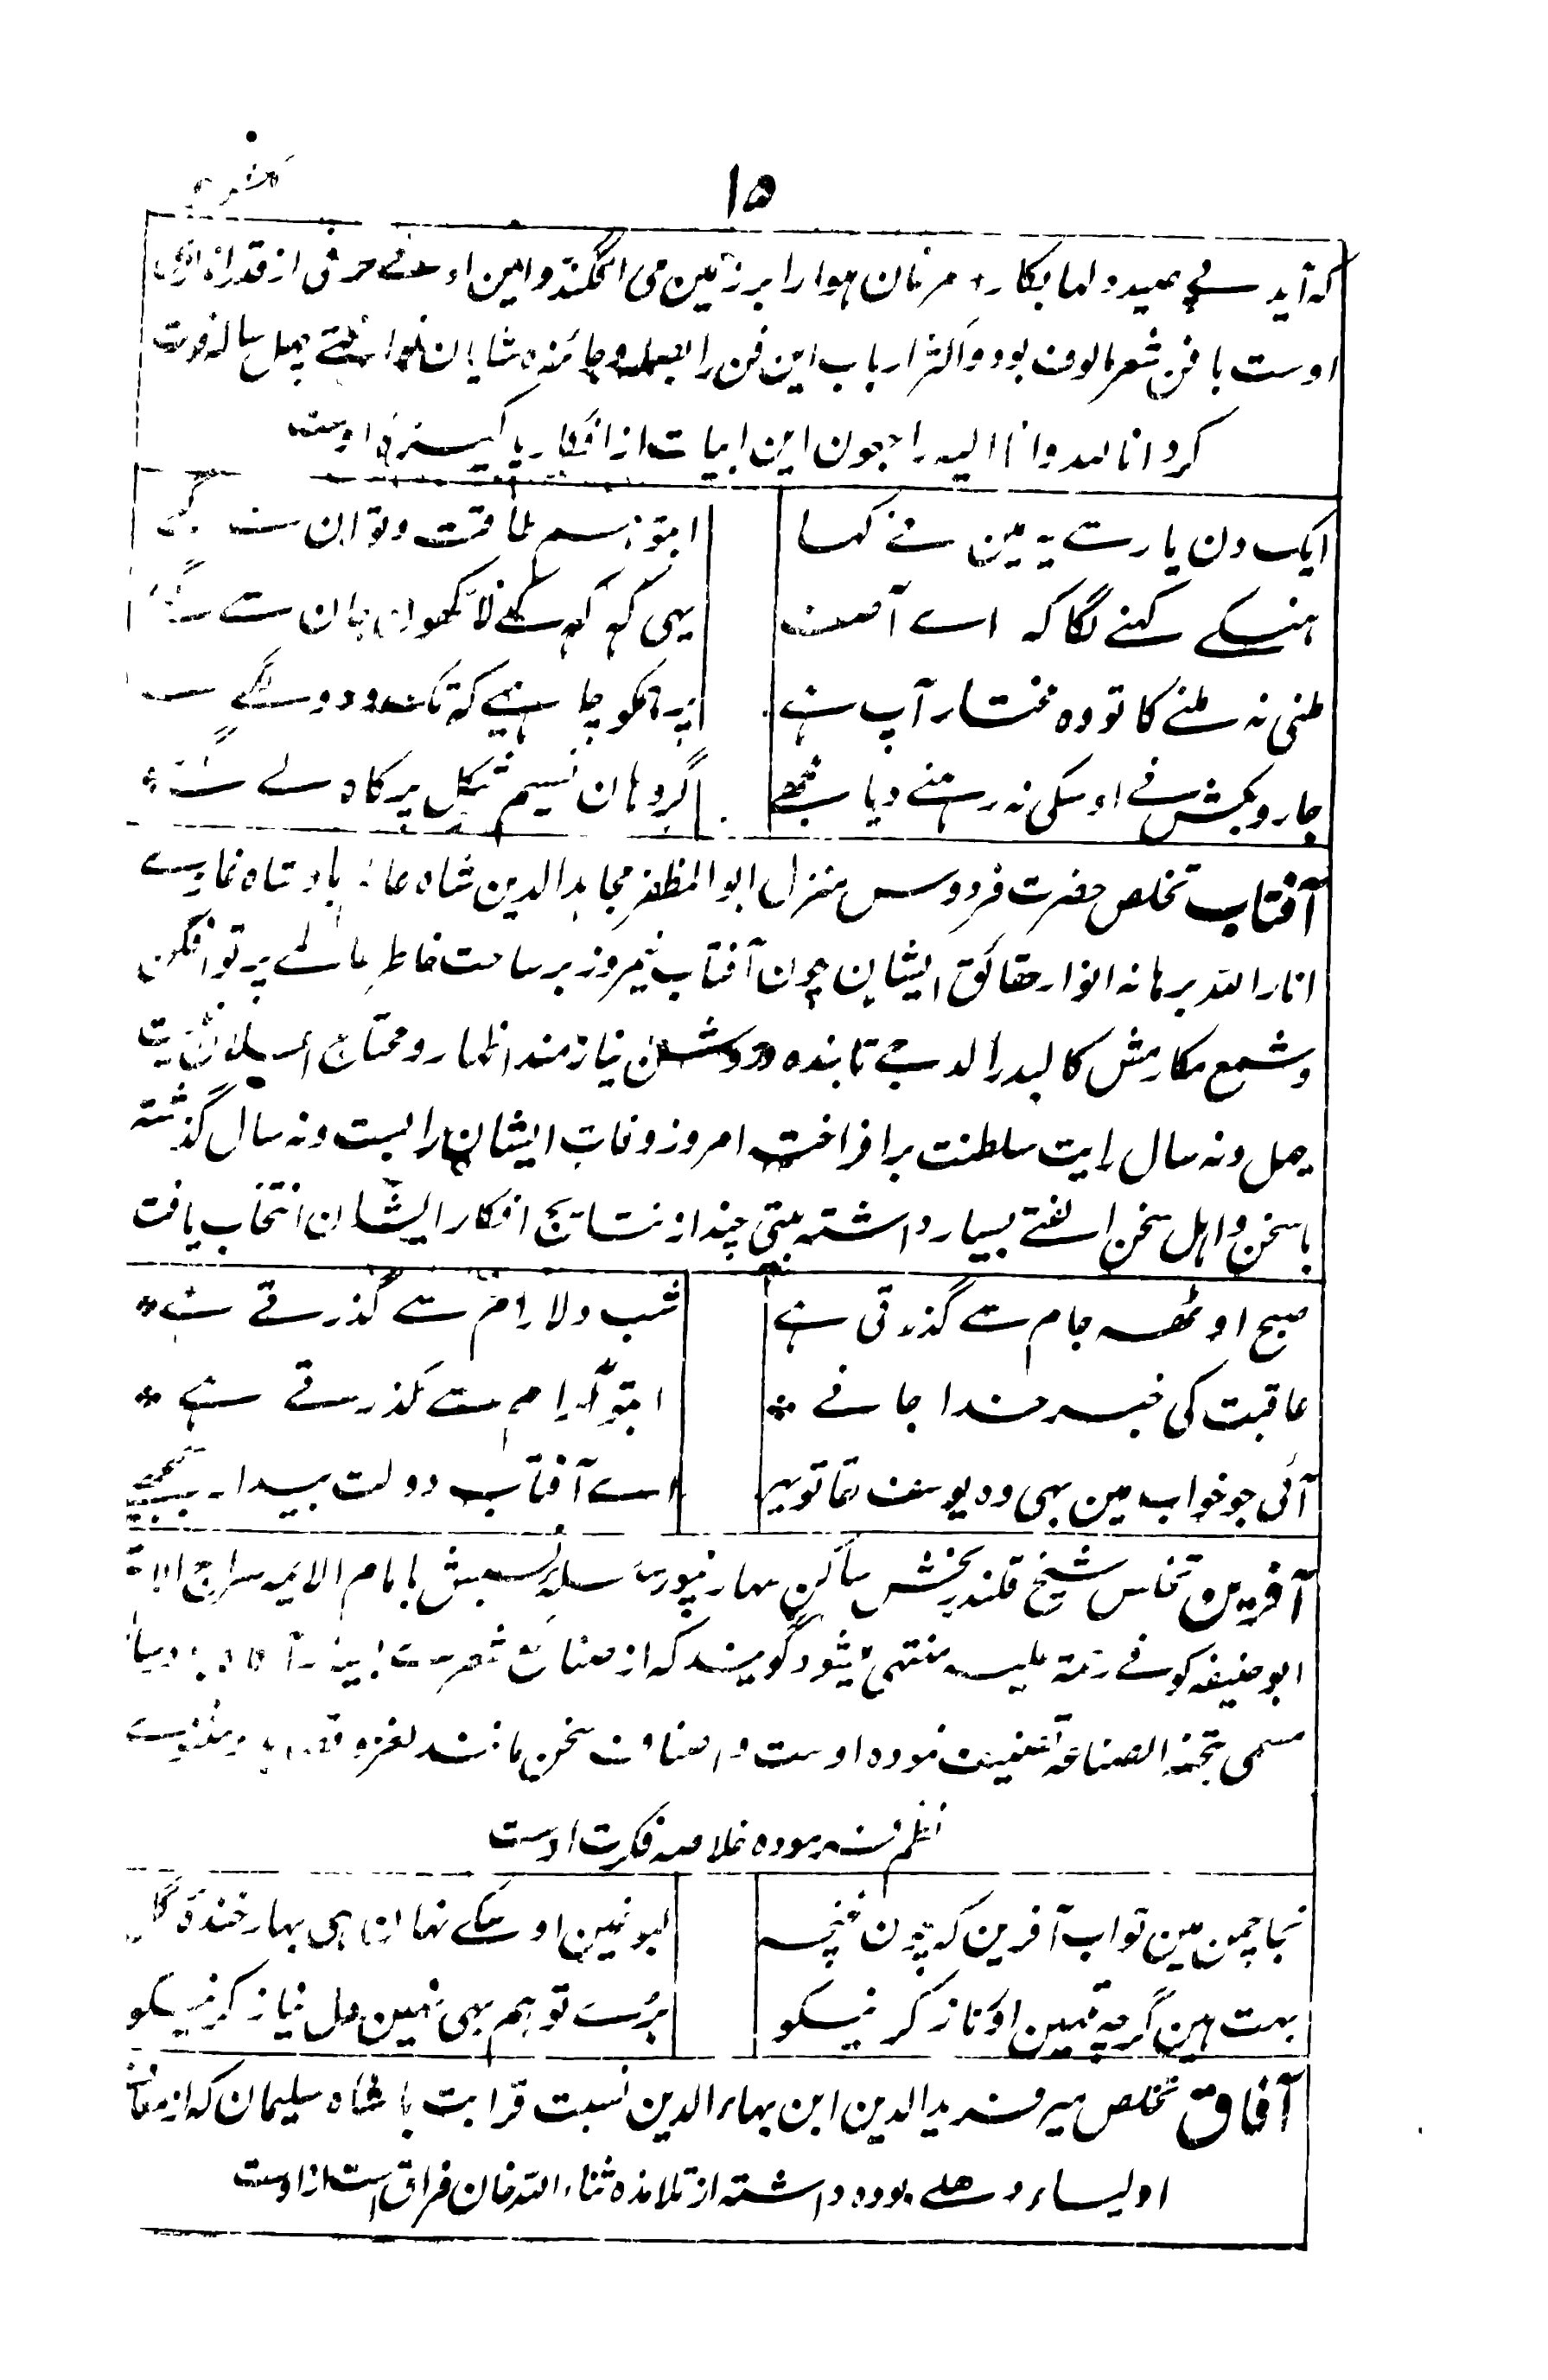 ۱۵
که آید پے صید دلها بکار * مرغان هوا را بر زمین می افگند و این ادنے حرفی از قدر اندازی
اوست با فن شعر مالوف بود و اکثر ارباب این فن را بصله و جائزه شایان نواختے چهل ساله فوت
کرد انا لله وانا الیه راجعون این ابیات از افکار پاکیزه اوست
ایک دن یار سے یہ مین نے کہا
ابتو ہم طاقت و توان سے گئے
ہنسکے کہنے لگا کہ اے آصف
یہی کہ کہ کے لاکھون جان سے گئے
ملنی نہ ملنے کا تو وہ مختار آپ ہے
پر تمکو چاہیے کہ تک و دو لگے
جاروبکش نے اوسکی نہ رہنے دیا مجھے
گر وہان نسیم شکل پر کاہ لے گئے
آفتاب تخلص حضرت فردوس منزل ابو المظفر مجاہد الدین شاہ عالم بادشاہ غازیے
انار اللہ برہانہ انوار حقائق ایشان چون آفتاب نیمروز بر ساحت خاطر عالمے پرتو افگن
و شمع مکارمش کالبدر الدجے تابنده و روشن نیازمند اظهار و محتاج
چهل و نه سال رایت سلطنت برافراخت امروز وفات ایشان را بست و نه سال گذشته
با سخن و اهل سخن الفتے بسیار داشته بیتی چند از نتایج افکار ایشان انتخاب یافت
صبح اوٹھ جام سے گذرتی ہے
شب دلارام سے گذرتے ہے *
عاقبت کی خبر خدا جانے *
ابتو آرام سے گذرتے ہے *
آئی جو خواب مین بہی وہ یوسف لقا تو پہر
اے آفتاب دولت بیدار
آفرین تخلص شیخ قلندر بخش ساکن سہارنپور سلسلہ نسبش با امام الائمہ سراج الامۃ
ابو حنیفہ کوفے رحمۃ علیہ منتهی میشود گویند کہ از صنائع شعر
مسمی بتحفۃ الصناعۃ تصنیف نموده اوست و اصناف سخن مانند لغز و
نظم فرموده خلاصہ فکرت اوست
نجا چمن مین تو اب آفرین کہ چون غنچہ
لبونمین اوسکے نہان ہی بہار خنده گل
بہت ہین گرچہ تمہین اور ناز کرنیکو
برے تو ہم بہی نہین دل نیاز کرنیکو
آفاق تخلص میر فرید الدین ابن بہاء الدین نسبت قرابت با شاہ سلیمان کہ از
اولیاء دہلے بوده داشته از تلامذہ ثناء اللہ خان فراق است ازوست